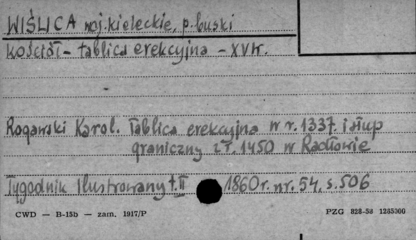 WIŚLICA woj. kieleckie, p. buski
Kościół - tablica erekcyjna - XV w.
Rogawski Karol. Tablica erekcyjna w r. 1337. i słup
graniczny z r. 1450 w Radłowie
Tygodnik Ilustrowany t. II 1860 r. nr. 54, s. 506
CWD — B-15b — zam. 1917/P
PZG 828-58 1285000